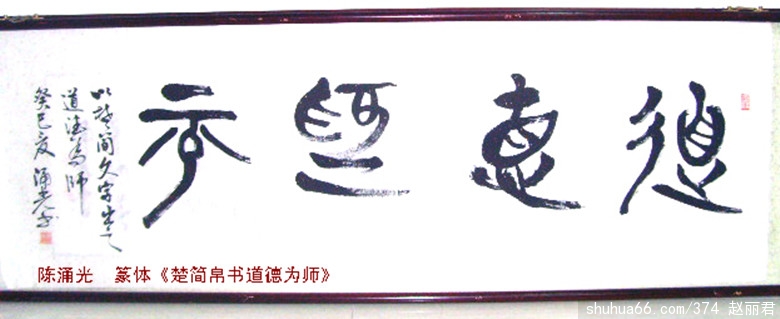 道悳為帀
以楚简文字出之
道德為師
癸巳夏 涌光书
陈涌光 篆体《楚简帛书道德为师》
shuhua66.com/374 赵丽君